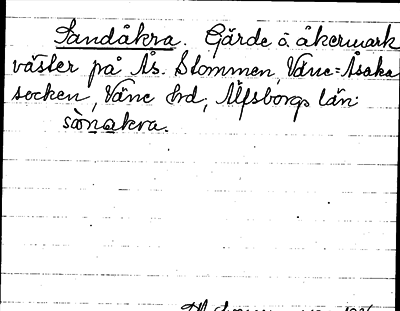 Sandåkra. Gärde å åkermark
väster på Ås. Stommen, Väne=Åsaka
socken, Väne hd, Älfsborgs län.
sànakra.